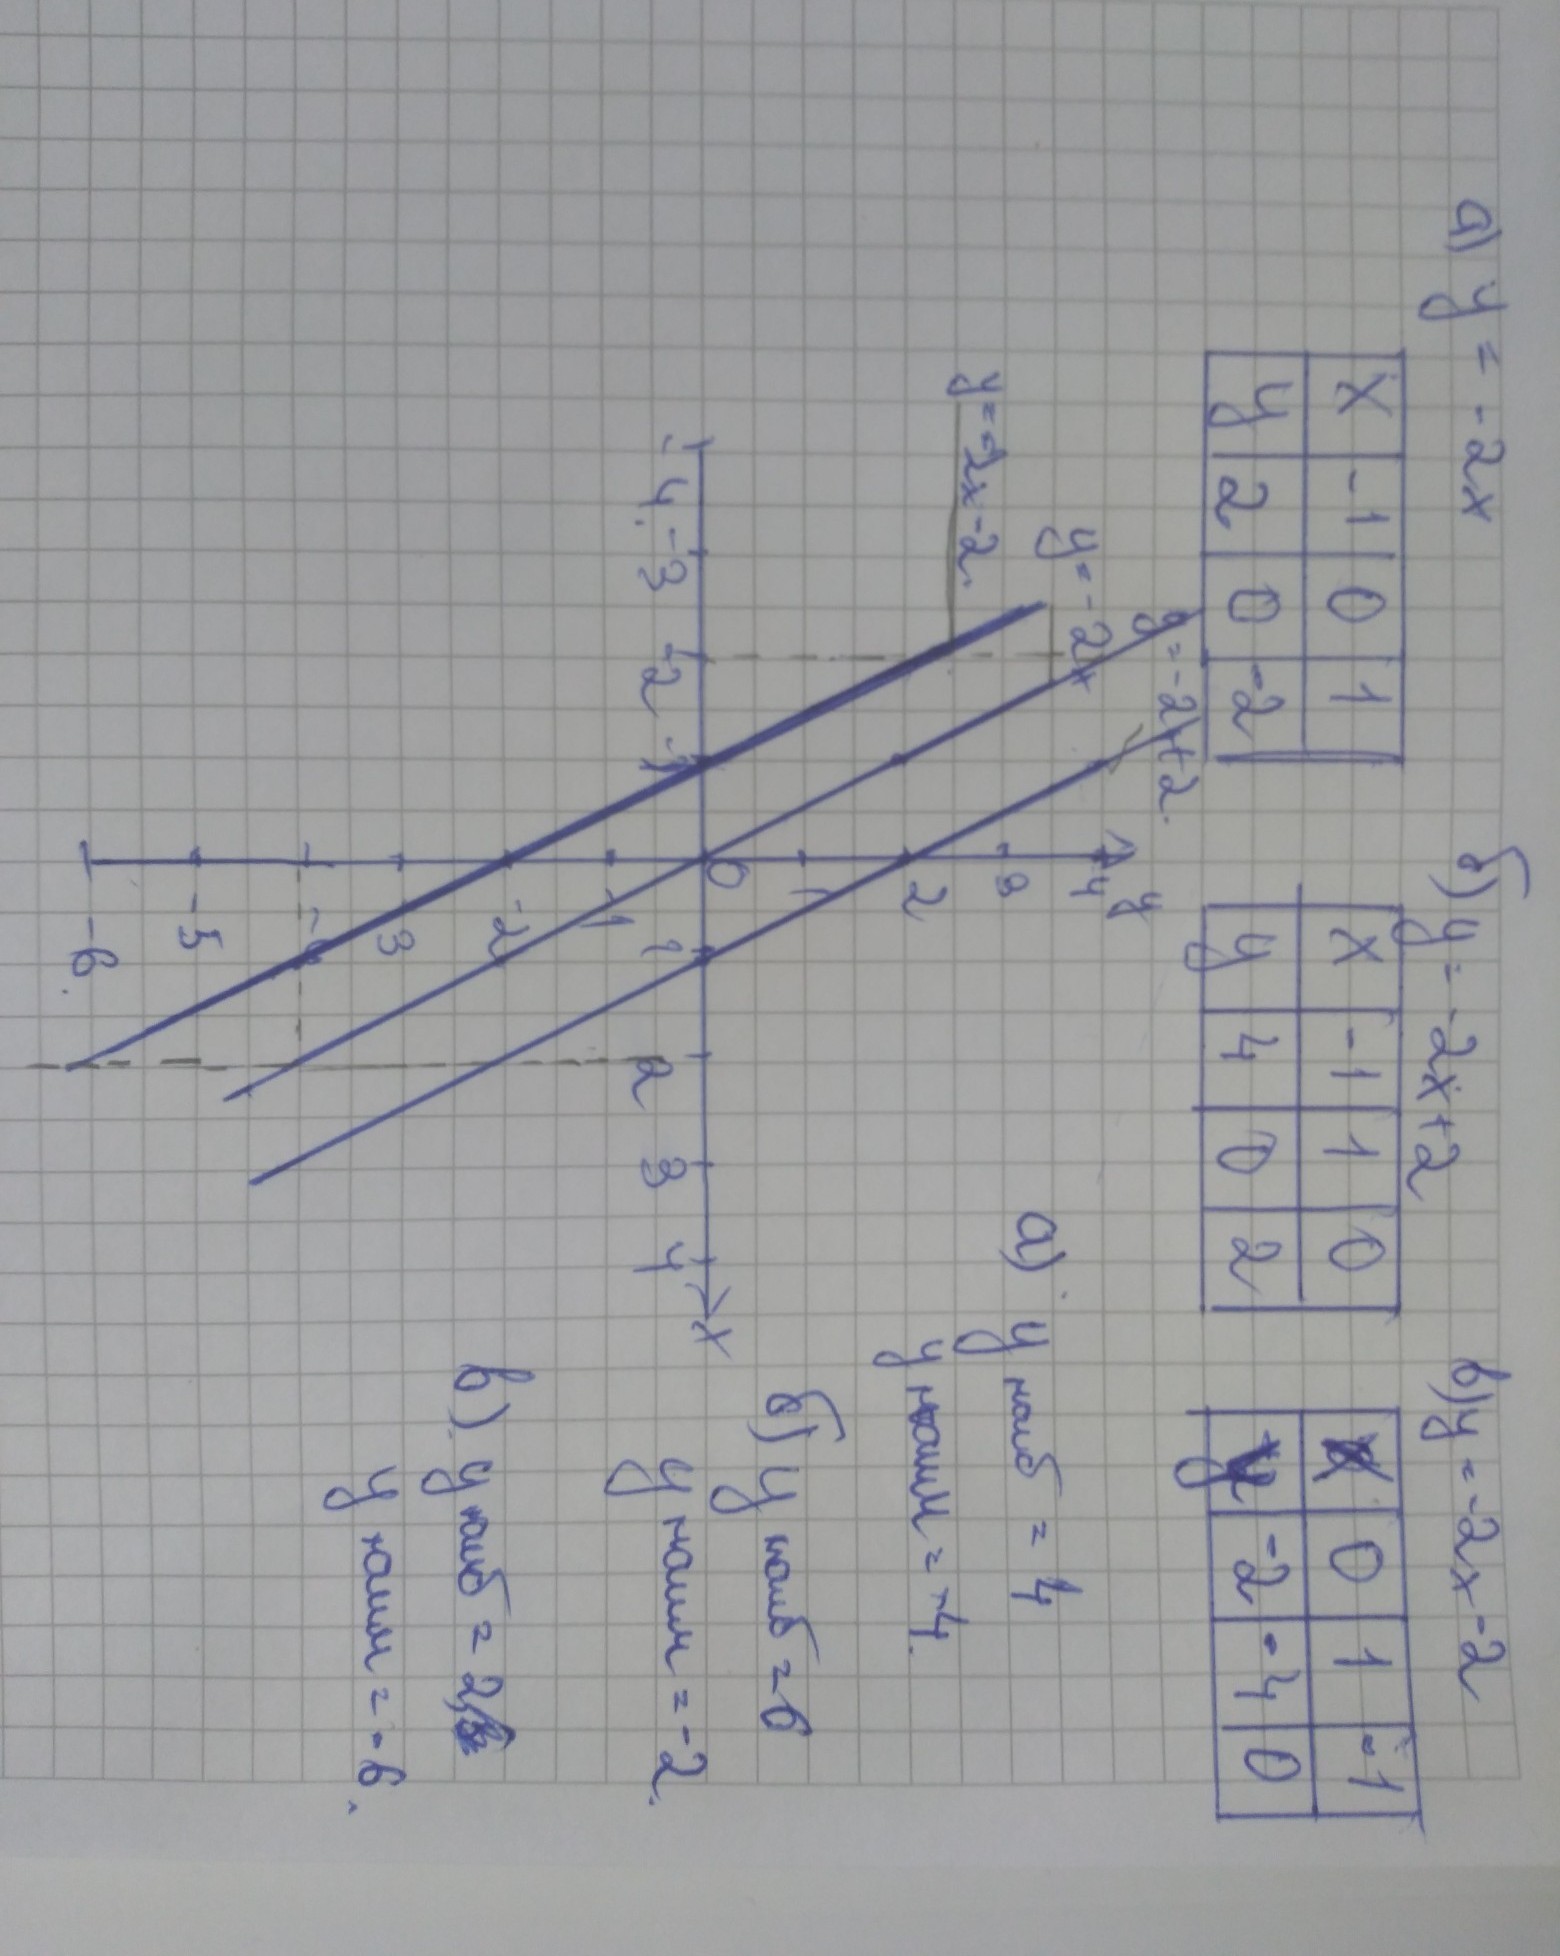 а) y = -2x
x -1 0 1
y 2 0 -2
б) y = -2x+2
x -1 1 0
y 4 0 2
в) y = -2x-2
x 0 1 -1
y -2 -4 0
y=-2x+2.
y=-2x
y=-2x-2.
y
4
3
2
1
0
-4. -3 -2 -1 1 2 3 4 x
-1
-2
3
-4
-5
-6.
а) y наиб = 4
y наим = -4.
б) y наиб = 6
y наим = -2.
в) y наиб = 2
y наим = -6.